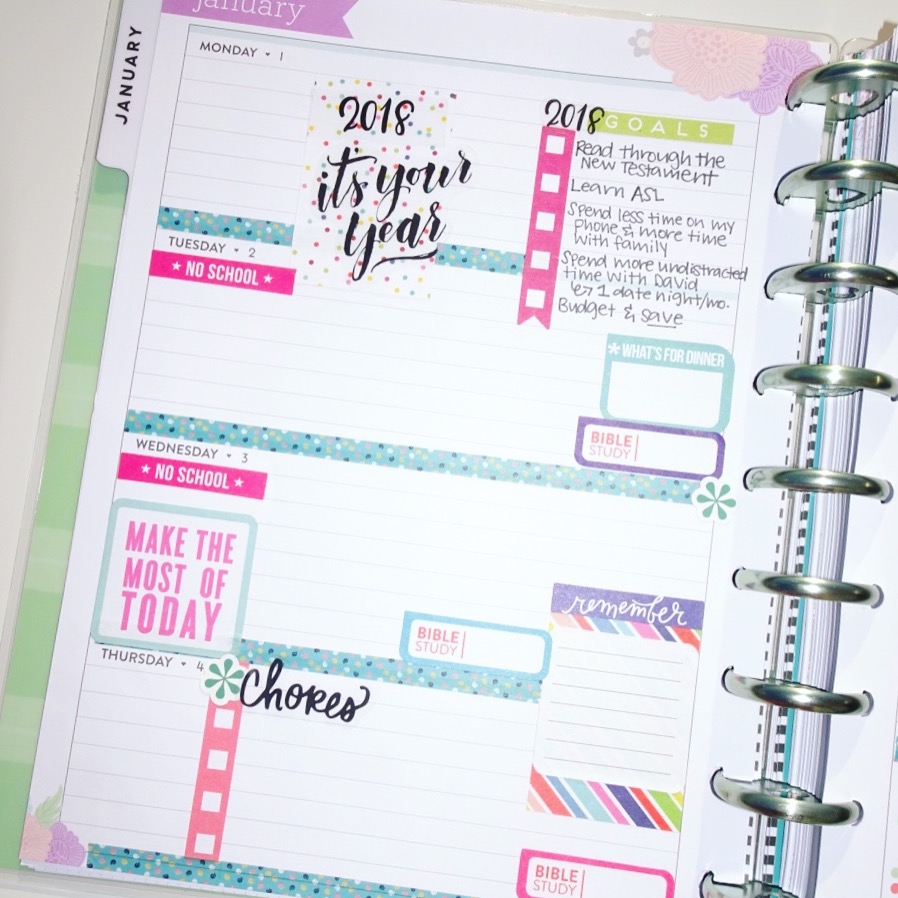 january
JANUARY
MONDAY • 1
2018
it's your
year
2018 GOALS
Read through the
New Testament
Learn ASL
Spend less time on my
Phone & more time
with family
Spend more undistracted
time with David
↳ 1 date night/mo.
Budget & save
TUESDAY • 2
★ NO SCHOOL ★
* WHAT'S FOR DINNER
BIBLE
STUDY
WEDNESDAY • 3
★ NO SCHOOL ★
MAKE THE
MOST OF
TODAY
BIBLE
STUDY
remember
THURSDAY • 4
Chores
BIBLE
STUDY